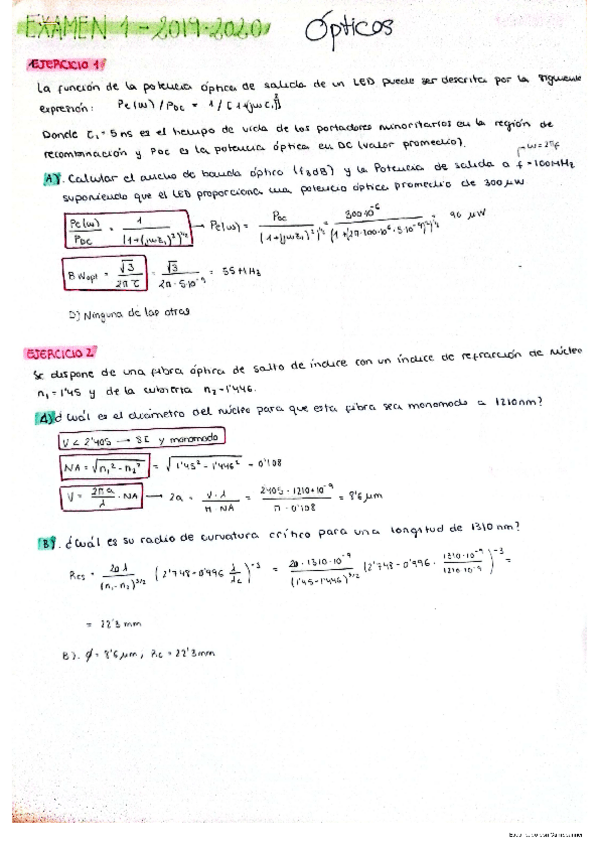 EXAMEN 1 - 2019-2020 Ópticos
EJERCICIO 1
La función de la potencia óptica de salida de un LED puede ser descrita por la siguiente
expresión: Pe(ω) / PDC = 1 / [1+(jωτ1)²]
Donde τ1 = 5 ns es el tiempo de vida de los portadores minoritarios en la región de
recombinación y PDC es la potencia óptica en DC (valor promedio).
ω=2πf
A). Calcular el ancho de banda óptico (f3dB) y la Potencia de salida a f = 100MHz
suponiendo que el LED proporciona una potencia óptica promedio de 300 μW
Pe(ω)/PDC = 1/(1+(jωτ1)²)^1/2 → Pe(ω) = PDC/(1+(jωτ1)²)^1/2 = 300·10⁻⁶/(1+(2π·100·10⁶·5·10⁻⁹)²)^1/2 = 90 μW
BWopt = √3/2πτ = √3/2π·5·10⁻⁹ = 55 MHz
D) Ninguna de las otras
EJERCICIO 2
Se dispone de una fibra óptica de salto de índice con un índice de refracción de núcleo
n1 = 1'45 y de la cubierta n2 = 1'446.
A) ¿Cuál es el diámetro del núcleo para que esta fibra sea monomodo a 1210nm?
V < 2'405 → SI y monomodo
NA = √n1² - n2² = √1'45² - 1'446² - 0'108
V = 2πa/λ · NA → 2a = V·λ/π·NA = 2405·1210·10⁻⁹/π·0'108 = 8'6 μm
B). ¿Cuál es su radio de curvatura crítico para una longitud de 1310nm?
Rcs = 20λ/(n1-n2)^3/2 (2'748 - 0'996 λ/λc)⁻³ = 20·1310·10⁻⁹/(1'45-1'446)^3/2 (2'748 - 0'996 · 1310·10⁻⁹/1210·10⁻⁹)⁻³ =
= 22'3 mm
B). ϕ = 8'6 μm, Rc = 22'3 mm